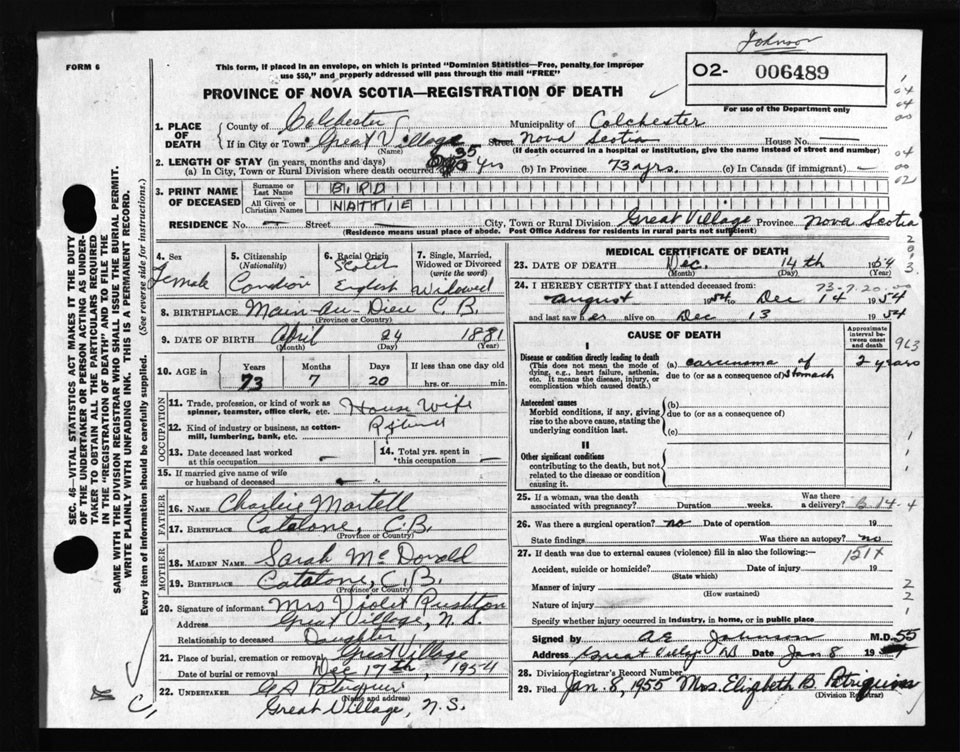 Johnson
FORM 6
This form, if placed in an envelope, on which is printed "Dominion Statistics—Free, penalty for improper
use $50," and properly addressed will pass through the mail "FREE"
PROVINCE OF NOVA SCOTIA—REGISTRATION OF DEATH
O2- 006489
For use of the Department only
1. PLACE OF DEATH
County of Colchester Municipality of Colchester
If in City or Town Great Village Street Nova Scotia House No. —
(Name) (If death occurred in a hospital or institution, give the name instead of street and number)
2. LENGTH OF STAY (in years, months and days)
(a) In City, Town or Rural Division where death occurred 35 yrs (b) In Province 73 yrs. (c) In Canada (if immigrant) —
3. PRINT NAME OF DECEASED
Surname or Last Name BIRD
All Given or Christian Names NATTIE
RESIDENCE No. — Street — City, Town or Rural Division Great Village Province Nova Scotia
(Residence means usual place of abode. Post Office Address for residents in rural parts not sufficient)
4. Sex Female
5. Citizenship (Nationality)
6. Racial Origin Scotch English
7. Single, Married, Widowed or Divorced (write the word) Widowed
8. BIRTHPLACE Main-au-Dieu C.B.
(Province or Country)
9. DATE OF BIRTH April 24 1881
(Month) (Day) (Year)
10. AGE in Years 73 Months 7 Days 20 If less than one day old hrs. or min.
OCCUPATION
11. Trade, profession, or kind of work as spinner, teamster, office clerk, etc. House Wife
12. Kind of industry or business, as cotton-mill, lumbering, bank, etc.
13. Date deceased last worked at this occupation —
14. Total yrs. spent in this occupation —
15. If married give name of wife or husband of deceased —
FATHER
16. NAME Charlie Martell
17. BIRTHPLACE Catalone, C.B.
(Province or Country)
MOTHER
18. MAIDEN NAME Sarah McDonald
19. BIRTHPLACE Catalone, C.B.
(Province or Country)
20. Signature of informant Mrs Violet Rushton
Address Great Village, N.S.
Relationship to deceased Daughter
21. Place of burial, cremation or removal Great Village
Date of burial or removal Dec 17th, 1954
22. UNDERTAKER
(Name and address)
Great Village, N.S.
MEDICAL CERTIFICATE OF DEATH
23. DATE OF DEATH Dec. 14th 1954
(Month) (Day) (Year)
24. I HEREBY CERTIFY that I attended deceased from: 73-7-20
August 1954 to Dec 14 1954
and last saw her alive on Dec 13 1954
CAUSE OF DEATH
Approximate interval between onset and death
I
Disease or condition directly leading to death
(This does not mean the mode of dying, e.g., heart failure, asthenia, etc. It means the disease, injury, or complication which caused death.)
(a) carcinoma of 2 years
due to (or as a consequence of) stomach
Antecedent causes
Morbid conditions, if any, giving rise to the above cause, stating the underlying condition last.
(b)
due to (or as a consequence of)
(c)
II
Other significant conditions
contributing to the death, but not related to the disease or condition causing it.
25. If a woman, was the death associated with pregnancy? Duration weeks. Was there a delivery? B-14-4
26. Was there a surgical operation? no Date of operation 19
State findings Was there an autopsy? no
27. If death was due to external causes (violence) fill in also the following:— 151X
Accident, suicide or homicide? Date of injury 19
(State which)
Manner of injury
(How sustained)
Nature of injury
Specify whether injury occurred in industry, in home, or in public place
Signed by A.E. Johnson M.D.
Address Great Village Date Jan 8 1955
28. Division Registrar's Record Number
29. Filed Jan. 8, 1955 Mrs. Elizabeth B. Petriquin
(Division Registrar)
SEC. 46—VITAL STATISTICS ACT MAKES IT THE DUTY
OF THE UNDERTAKER OR PERSON ACTING AS UNDER-
TAKER TO OBTAIN ALL THE PARTICULARS REQUIRED
IN THE "REGISTRATION OF DEATH" AND TO FILE THE
SAME WITH THE DIVISION REGISTRAR WHO SHALL ISSUE THE BURIAL PERMIT.
WRITE PLAINLY WITH UNFADING INK. THIS IS A PERMANENT RECORD.
Every item of information should be carefully supplied. (See reverse side for instructions.)